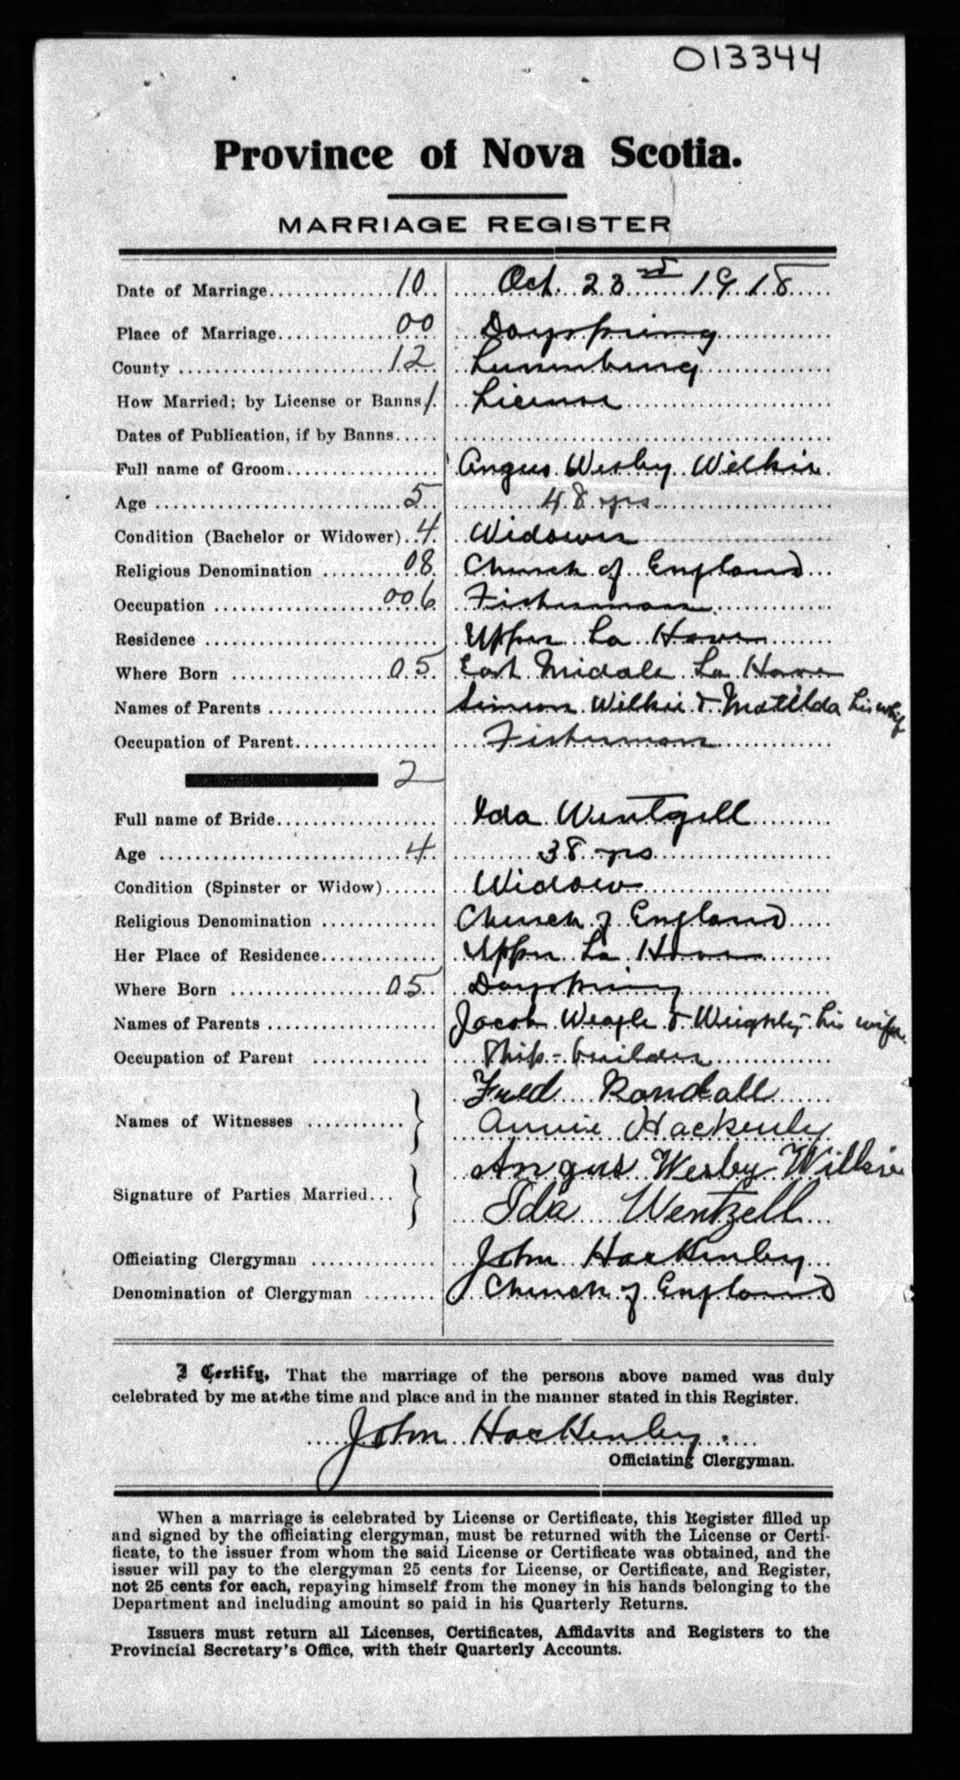 013344
Province of Nova Scotia.
MARRIAGE REGISTER
Date of Marriage 10 Oct. 23rd 1918
Place of Marriage 00 Dayspring
County 12 Lunenburg
How Married; by License or Banns 1 License
Dates of Publication, if by Banns
Full name of Groom Angus Wesley Wilkie
Age 5 48 yrs
Condition (Bachelor or Widower) 4 Widower
Religious Denomination 08 Church of England
Occupation 006 Fisherman
Residence Upper La Have
Where Born 05 East Middle La Have
Names of Parents Simeon Wilkie & Matilda his wife
Occupation of Parent Fisherman
2
Full name of Bride Ida Wentzell
Age 4 38 yrs
Condition (Spinster or Widow) Widow
Religious Denomination Church of England
Her Place of Residence Upper La Have
Where Born 05 Dayspring
Names of Parents Jacob Weagle & his wife
Occupation of Parent Ship-builder
Fred Randall
Names of Witnesses Annie Hackenley
Angus Wesley Wilkie
Signature of Parties Married Ida Wentzell
Officiating Clergyman John Hackenley
Denomination of Clergyman Church of England
I Certify, That the marriage of the persons above named was duly
celebrated by me at the time and place and in the manner stated in this Register.
John Hackenley
Officiating Clergyman.
When a marriage is celebrated by License or Certificate, this Register filled up
and signed by the officiating clergyman, must be returned with the License or Certi-
ficate, to the issuer from whom the said License or Certificate was obtained, and the
issuer will pay to the clergyman 25 cents for License, or Certificate, and Register,
not 25 cents for each, repaying himself from the money in his hands belonging to the
Department and including amount so paid in his Quarterly Returns.
Issuers must return all Licenses, Certificates, Affidavits and Registers to the
Provincial Secretary's Office, with their Quarterly Accounts.